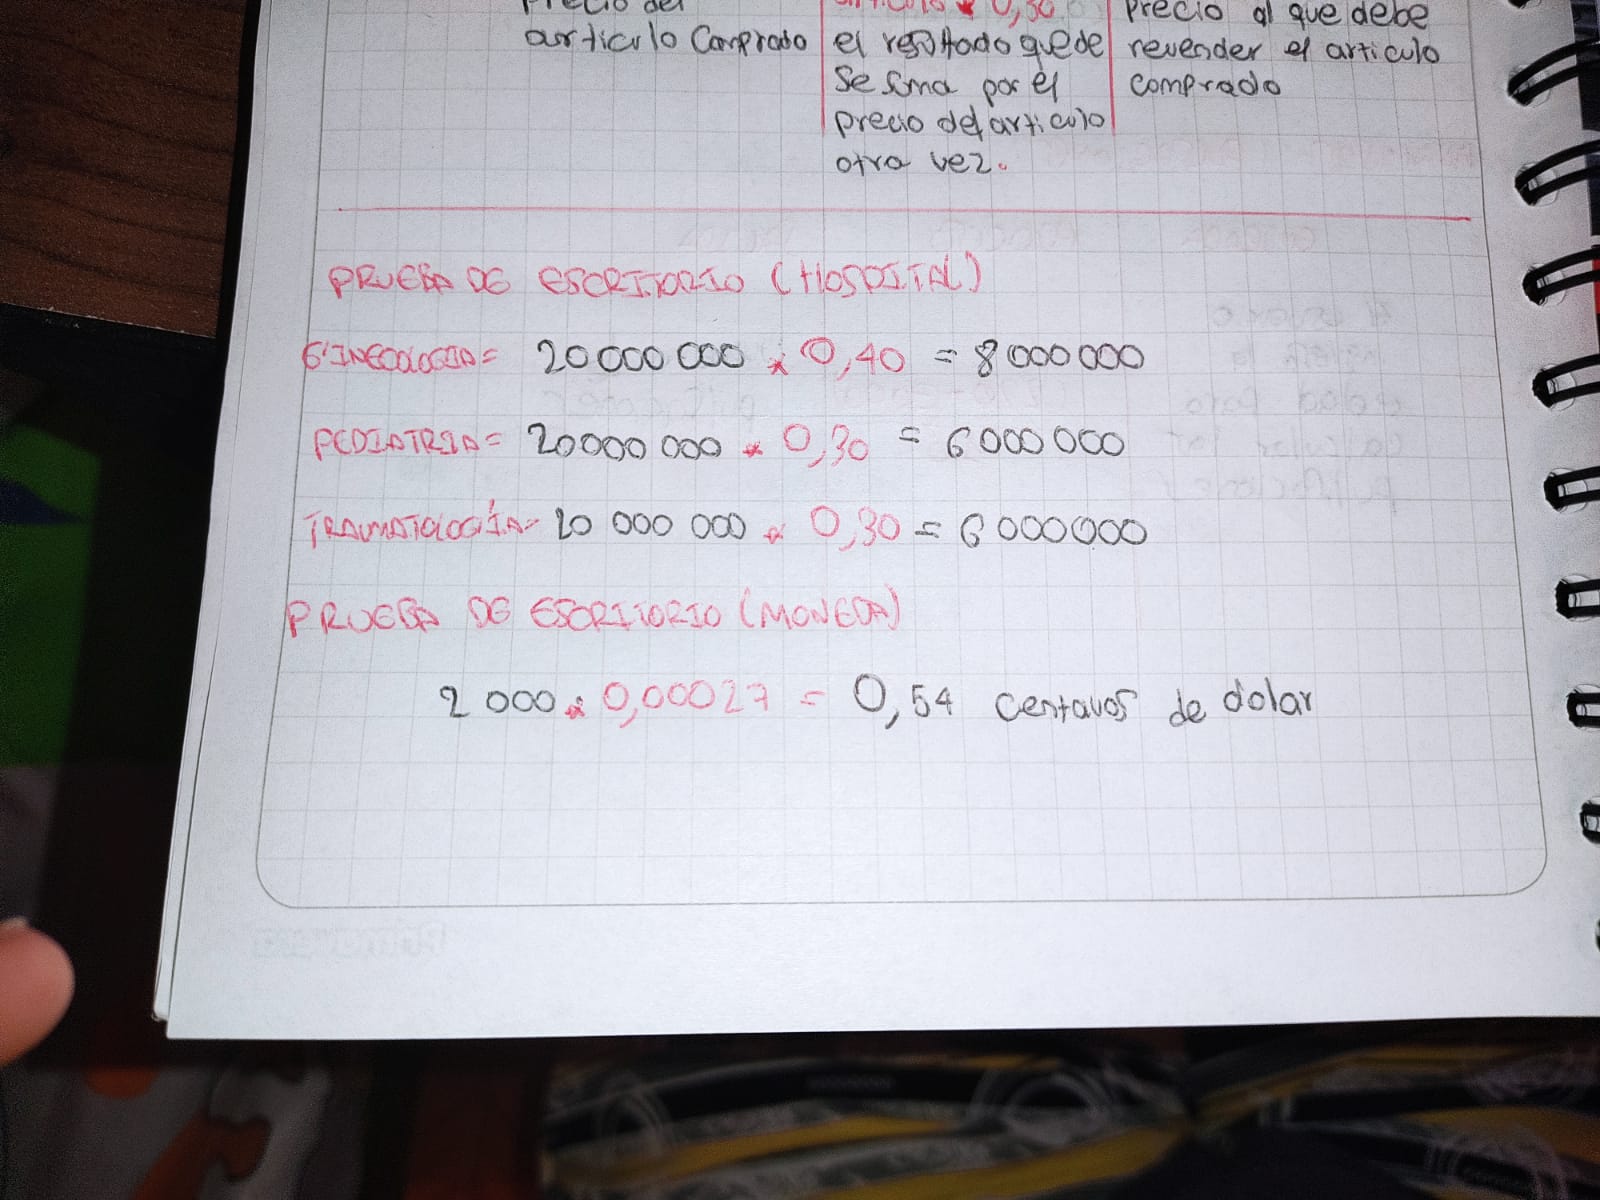 precio del
articulo Comprado
articulo * 0,30
el resultado quede
se suma por el
precio del articulo
otra vez.
precio al que debe
revender el articulo
comprado
PRUEBA DE ESCRITORIO (HOSPITAL)
GINECOLOGIA= 20000 000 * 0,40 = 8 000 000
PEDIATRIA= 20000 000 * 0,30 = 6 000 000
TRAUMATOLOGÍA= 20 000 000 * 0,30 = 6 000000
PRUEBA DE ESCRITORIO (MONEDA)
2 000 * 0,00027 = 0,54 centavos de dolar